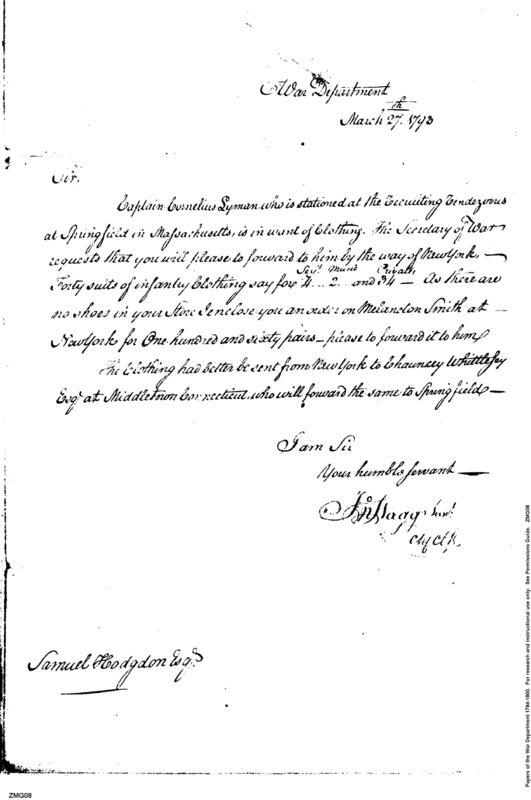 War Department
March 27.th 1793
Sir.
Captain Cornelius Lyman, who is stationed at the Recruiting Rendezvous
at Springfield in Massachusetts, is in want of Clothing. The Secretary of War
requests that you will please to forward to him by the way of New York, —
Serjts Music Privates
Forty suits of infantry Clothing say for 4 .. 2 .. and 34 — As there are
no shoes in your Store I enclose you an order on Melancton Smith at —
New York for One hundred and sixty pairs — please to forward it to him
The Clothing had better be sent from New York to Chauncey Whittlesey
Esqr. at Middletown Connecticut, who will forward the same to Springfield —
I am Sir
Your humble servant —
Jno Stagg Junr.
Chf Clk
Samuel Hodgdon Esqr.
ZMG08
Papers of the War Department 1784-1800. For research and instructional use only. See Permissions Guide. ZMG08